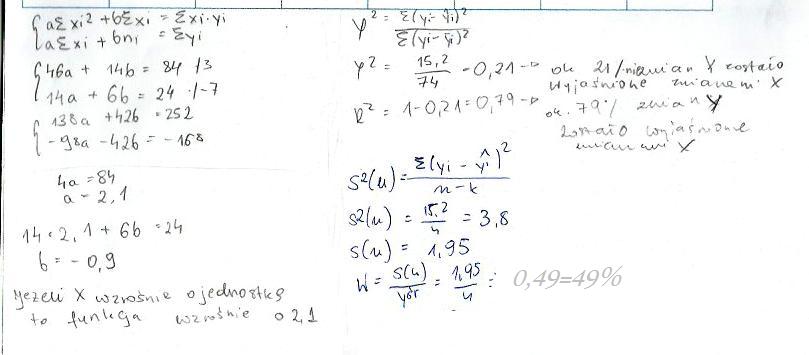 { aΣxi² + bΣxi = Σxi·yi
{ aΣxi + bni = Σyi
{ 46a + 14b = 84 /3
{ 14a + 6b = 24 ·/-7
{ 138a + 42b = 252
{ -98a - 42b = -168
4a = 84
a = 2,1
14·2,1 + 6b = 24
b = -0,9
Jeżeli X wzrośnie o jednostkę
to funkcja wzrośnie o 2,1
φ² = Σ(yi-ŷi)² / Σ(yi-ȳi)²
φ² = 15,2 / 74 - 0,21 → ok 21% zmian Y zostało
wyjaśnione zmianami X
R² = 1-0,21 = 0,79 → ok. 79% zmian Y
zostało wyjaśnione
zmianami X
S²(u) = Σ(yi - ŷi)² / n-k
S²(u) = 15,2 / 4 = 3,8
S(u) = 1,95
W = S(u) / Yśr = 1,95 / 4 = 0,49=49%